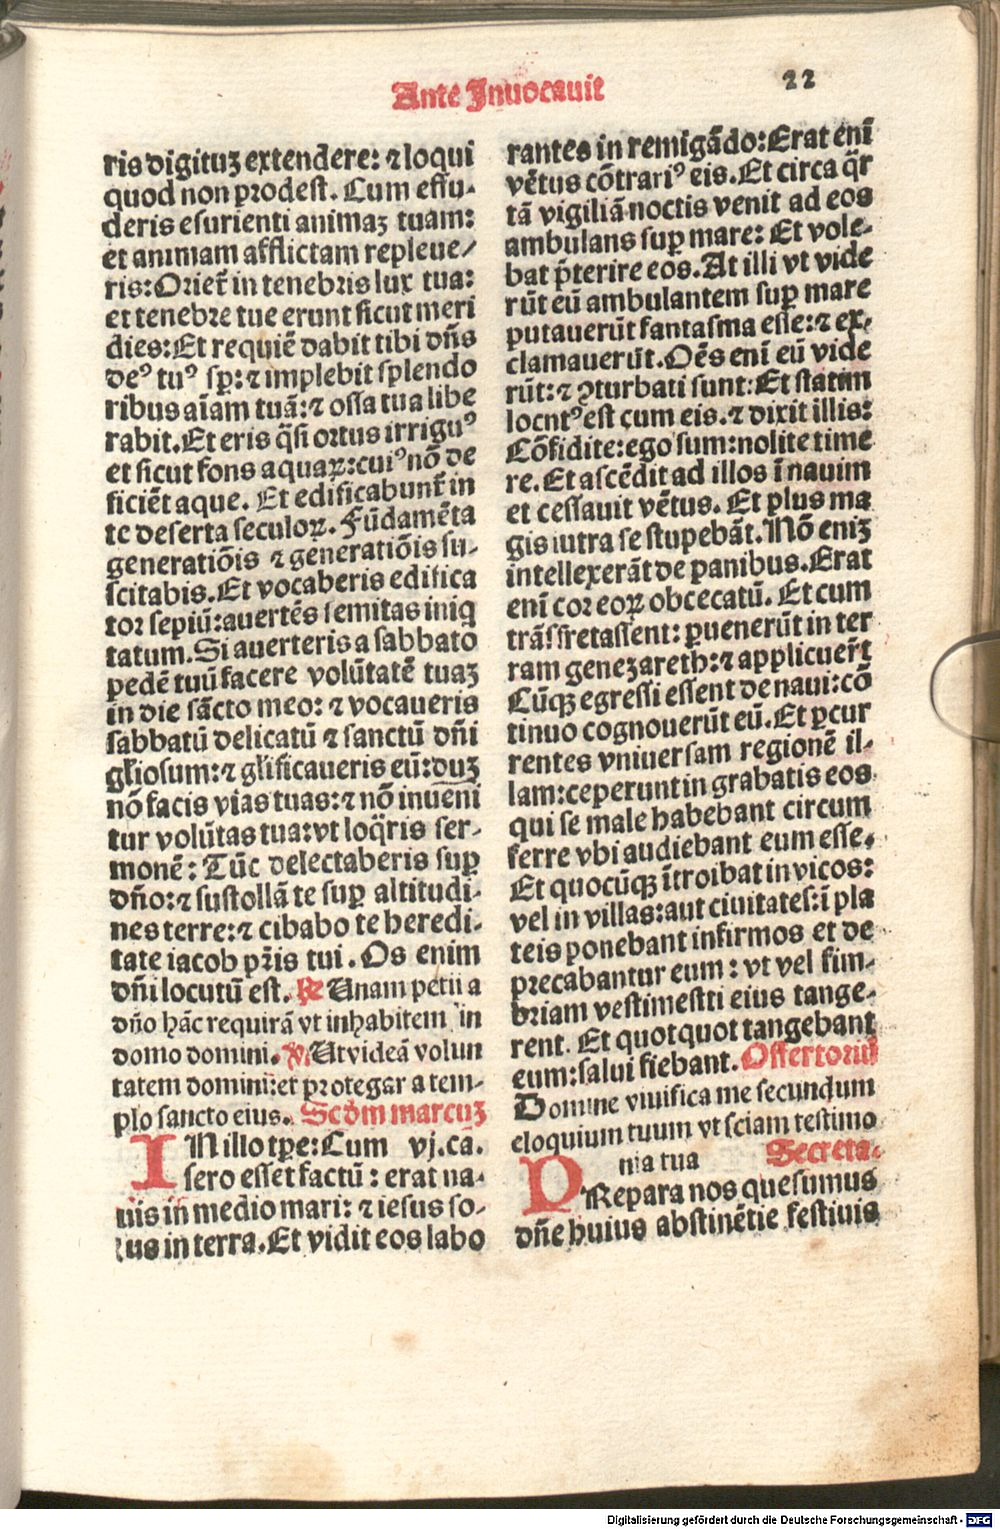 Ante Inuocauit
22
ris digituʒ extendere: ⁊ loqui
quod non prodest. Cum effu-
deris esurienti animaʒ tuam:
et animam afflictam repleue/
ris: Oriet᷑ in tenebris lux tua:
et tenebre tue erunt sicut meri
dies: Et requiē dabit tibi dn̄s
deꝰ tuꝰ sꝑ: ⁊ implebit splendo
ribus aīam tuā: ⁊ ossa tua libe
rabit. Et eris q̄si ortus irriguꝰ
et sicut fons aquaꝝ: cuiꝰ nō de
ficiēt aque. Et edificabunt᷑ in
te deserta seculoꝝ. Fūdamēta
generatiōis ⁊ generatiōis su-
scitabis. Et vocaberis edifica
tor sepiū: auertēs semitas iniq
tatum. Si auerteris a sabbato
pedē tuū facere volūtatē tuaʒ
in die sācto meo: ⁊ vocaueris
sabbatū delicatū ⁊ sanctū dn̄i
gl̄iosum: ⁊ gl̄ificaueris eū: duʒ
nō facis vias tuas: ⁊ nō inueni
tur volūtas tua: vt loq̄ris ser-
monē: Tūc delectaberis suꝑ
dn̄o: ⁊ sustollā te suꝑ altitudi-
nes terre: ⁊ cibabo te heredi-
tate iacob pr̄is tui. Os enim
dn̄i locutū est. ℟ Unam petii a
dn̄o hāc requirā vt inhabitem in
domo domini. ℣. Ut videā volun
tatem domini: et protegar a tem-
plo sancto eius. Scd̄m marcuʒ
IN illo tꝑe: Cum vj. ca.
sero esset factū: erat na-
uis in medio mari: ⁊ iesus so-
lus in terra. Et vidit eos labo
rantes in remigādo: Erat enī
vētus cōtrariꝰ eis. Et circa q̄r
tā vigiliā noctis venit ad eos
ambulans suꝑ mare: Et vole-
bat p̄terire eos. At illi vt vide
rūt eū ambulantem suꝑ mare
putauerūt fantasma esse: ⁊ ex-
clamauerūt. Oēs enī eū vide
rūt: ⁊ ꝯturbati sunt: Et statim
locutꝰ est cum eis. ⁊ dixit illis:
Cōfidite: ego sum: nolite time
re. Et ascēdit ad illos ī nauim
et cessauit vētus. Et plus ma
gis intra se stupebāt. Nō eniʒ
intellexerāt de panibus. Erat
enī cor eoꝝ obcecatū. Et cum
trāsfretassent: ꝑuenerūt in ter
ram genezareth: ⁊ applicuer̄t
Cūqꝫ egressi essent de naui: cō
tinuo cognouerūt eū. Et ꝑcur
rentes vniuersam regionē il-
lam: ceperunt in grabatis eos
qui se male habebant circum
ferre vbi audiebant eum esse.
Et quocūqꝫ ītroibat in vicos:
vel in villas: aut ciuitates: ī pla
teis ponebant infirmos et de
precabantur eum: vt vel fim-
briam vestimestti eius tange-
rent. Et quotquot tangebant
eum: salui fiebant. Offertoriū
Domine viuifica me secundum
eloquium tuum vt sciam testimo
nia tua Secreta.
PRepara nos quesumus
dn̄e huius abstinētie festiuis
Digitalisierung gefördert durch die Deutsche Forschungsgemeinschaft - DFG